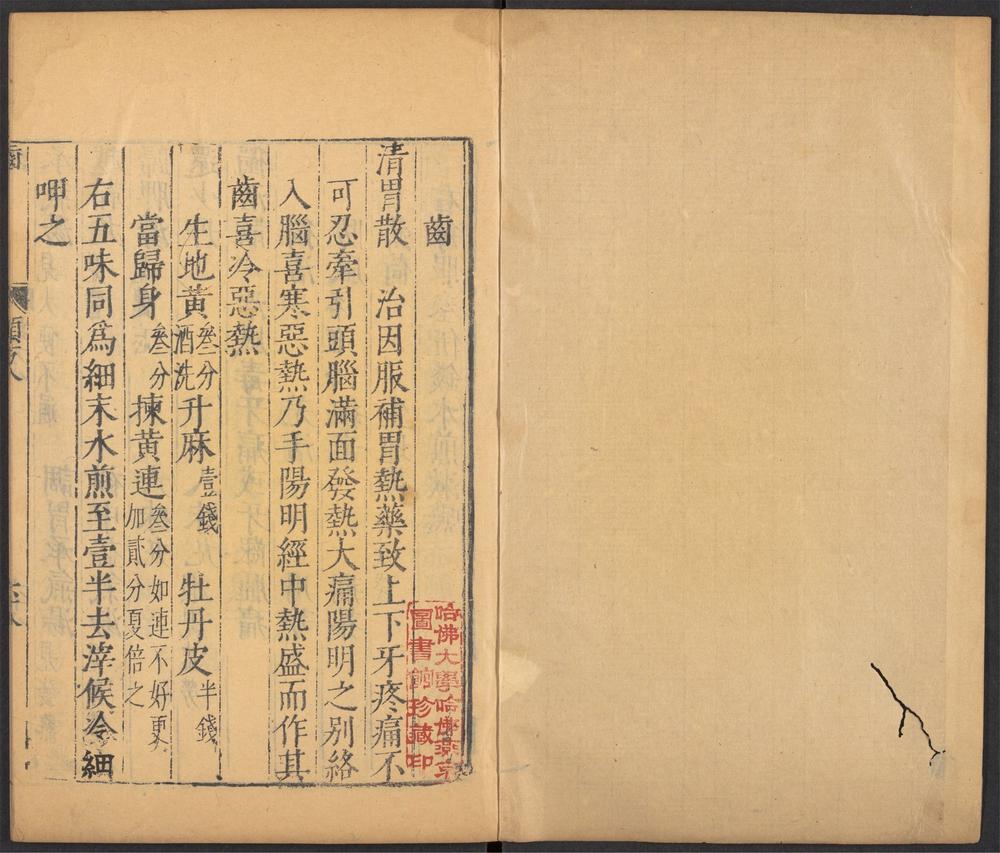 齒
清胃散　治因服補胃熱藥致上下牙疼痛不
可忍牽引頭腦滿面發熱大痛陽明之別絡
入腦喜寒惡熱乃手陽明經中熱盛而作其
齒喜冷惡熱
生地黃叄分酒洗升麻壹錢　牡丹皮半錢
當歸身叄分揀黃連叄分如連不好更加貳分夏倍之
右五味同爲細末水煎至壹半去滓候冷細
呷之
哈佛大學哈佛燕京
圖書館珍藏印